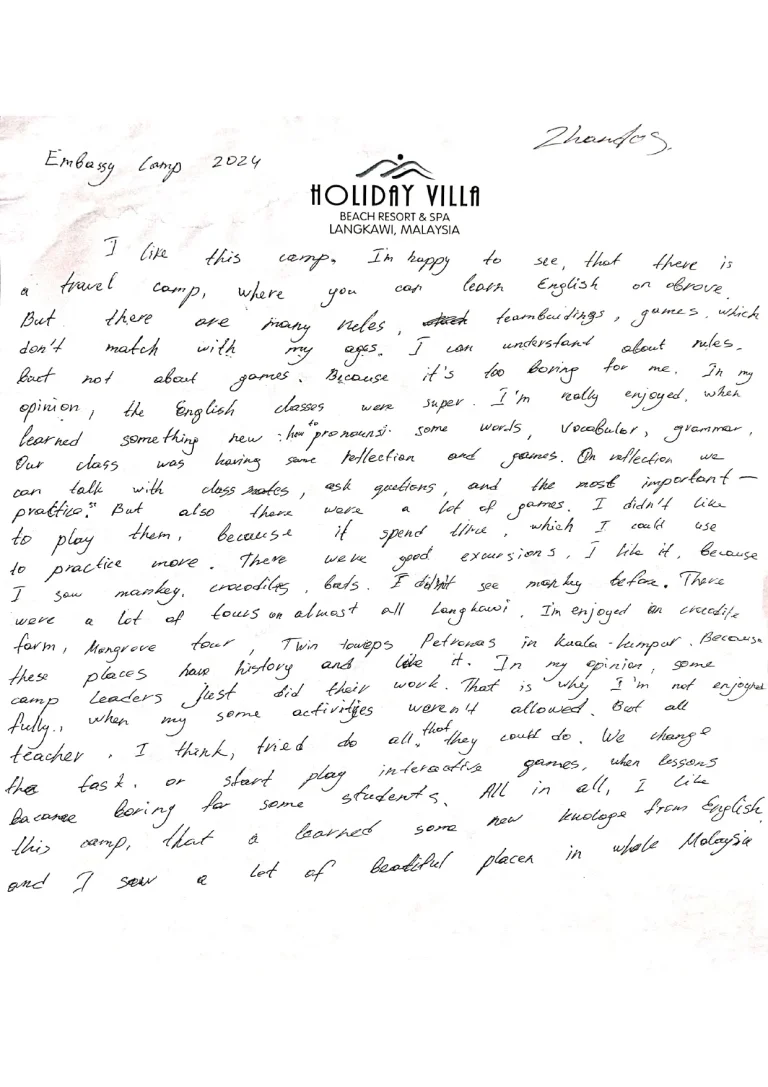 Zhandos.
Embassy Camp 2024
HOLIDAY VILLA
BEACH RESORT & SPA
LANGKAWI, MALAYSIA
I like this camp. I'm happy to see, that there is
a travel camp, where you can learn English on abrove.
But there are many rules, teambuidings, games, which
don't match with my ages. I can understand about rules,
but not about games. Because it's too boring for me. In my
opinion, the English classes were super. I'm really enjoyed, when
learned something new: how to pronounsi some words, vocabular, grammar,
Our class was having some reflection and games. On reflection we
can talk with class mates, ask quetions, and the most important —
practice." But also there were a lot of games. I didn't like
to play them, because it spend time, which I could use
to practice more. There were good excursions, I like it, because
I saw mankey, crocodiles, bats. I didn't see mankey before. There
were a lot of tours on almost all Langkawi. I'm enjoyed on crocodile
farm, Mangrove tour, Twin towers Petronas in Kuala-Lumpur. Because
these places have history and like it. In my opinion, some
camp leaders just did their work. That is why I'm not enjoyed
fully, when my some activities weren't allowed. But all
teacher, I think, tried do all, that they could do. We change
the task, or start play interactive games, when lessons
became boring for some students. All in all, I like
this camp, that a learned some new knologe from English
and I saw a lot of beatiful places in whole Malaysia